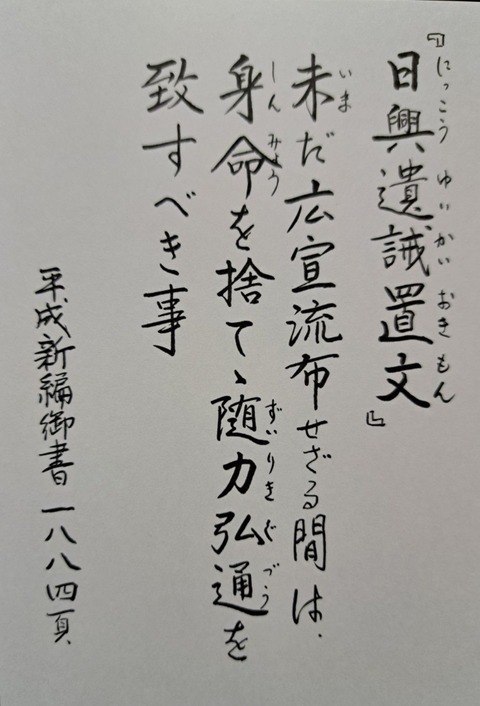 『日興遺誡置文』
にっこう ゆいかい おきもん
未だ広宣流布せざる間は、
いま
身命を捨てゝ随力弘通を
しん みょう ずいりき ぐ づう
致すべき事
平成新編御書 一八八四頁